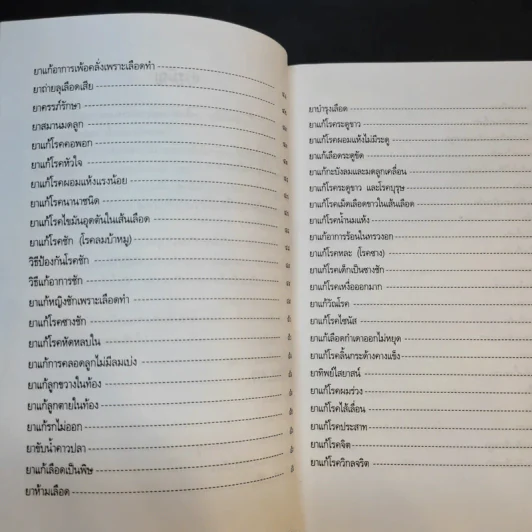 ยาแก้อาการเพ้อคลั่งเพราะเลือดทำ
ยาถ่ายลุเลือดเสีย
ยาครรภ์รักษา
ยาสมานมดลูก
ยาแก้โรคคอพอก
ยาแก้โรคหัวใจ
ยาแก้โรคผอมแห้งแรงน้อย
ยาแก้โรคนานาชนิด
ยาแก้โรคไขมันอุดตันในเส้นเลือด
ยาแก้โรคชัก (โรคลมบ้าหมู)
วิธีป้องกันโรคชัก
วิธีแก้อาการชัก
ยาแก้หญิงชักเพราะเลือดทำ
ยาแก้โรคซางชัก
ยาแก้โรคหัดหลบใน
ยาแก้การคลอดลูกไม่มีลมเบ่ง
ยาแก้ลูกขวางในท้อง
ยาแก้ลูกตายในท้อง
ยาแก้รกไม่ออก
ยาขับน้ำคาวปลา
ยาแก้เลือดเป็นพิษ
ยาห้ามเลือด
ยาบำรุงเลือด
ยาแก้โรคระดูขาว
ยาแก้โรคผอมแห้งไม่มีระดู
ยาแก้เลือดระดูขัด
ยาแก้กะบังลมและมดลูกเคลื่อน
ยาแก้โรคระดูขาว และโรคบุรุษ
ยาแก้โรคเม็ดเลือดขาวในเส้นเลือด
ยาแก้โรคน้ำนมแห้ง
ยาแก้อาการร้อนในทรวงอก
ยาแก้โรคหละ (โรคซาง)
ยาแก้โรคเด็กเป็นซางชัก
ยาแก้โรคเหงื่อออกมาก
ยาแก้วัณโรค
ยาแก้โรคไซนัส
ยาแก้เลือดกำเดาออกไม่หยุด
ยาแก้โรคลิ้นกระด้างคางแข็ง
ยาทิพย์ไสยาสน์
ยาแก้โรคผมร่วง
ยาแก้โรคไส้เลื่อน
ยาแก้โรคประสาท
ยาแก้โรคจิต
ยาแก้โรควิกลจริต